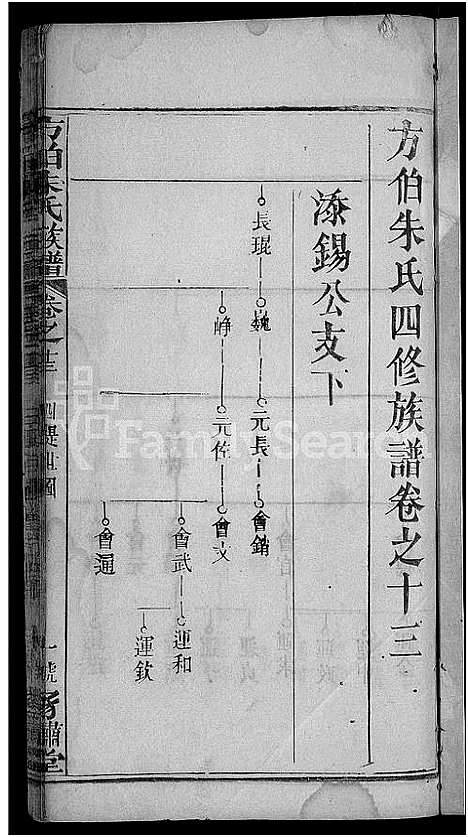 方伯朱氏四修族譜卷之十三
添錫公支下
長琨
巍
元長
會錯
崢
元佐
會文
會武
運和
運欽
會通
方伯朱氏族譜
卷之十三
四堤世圖
一號
FamilySearch